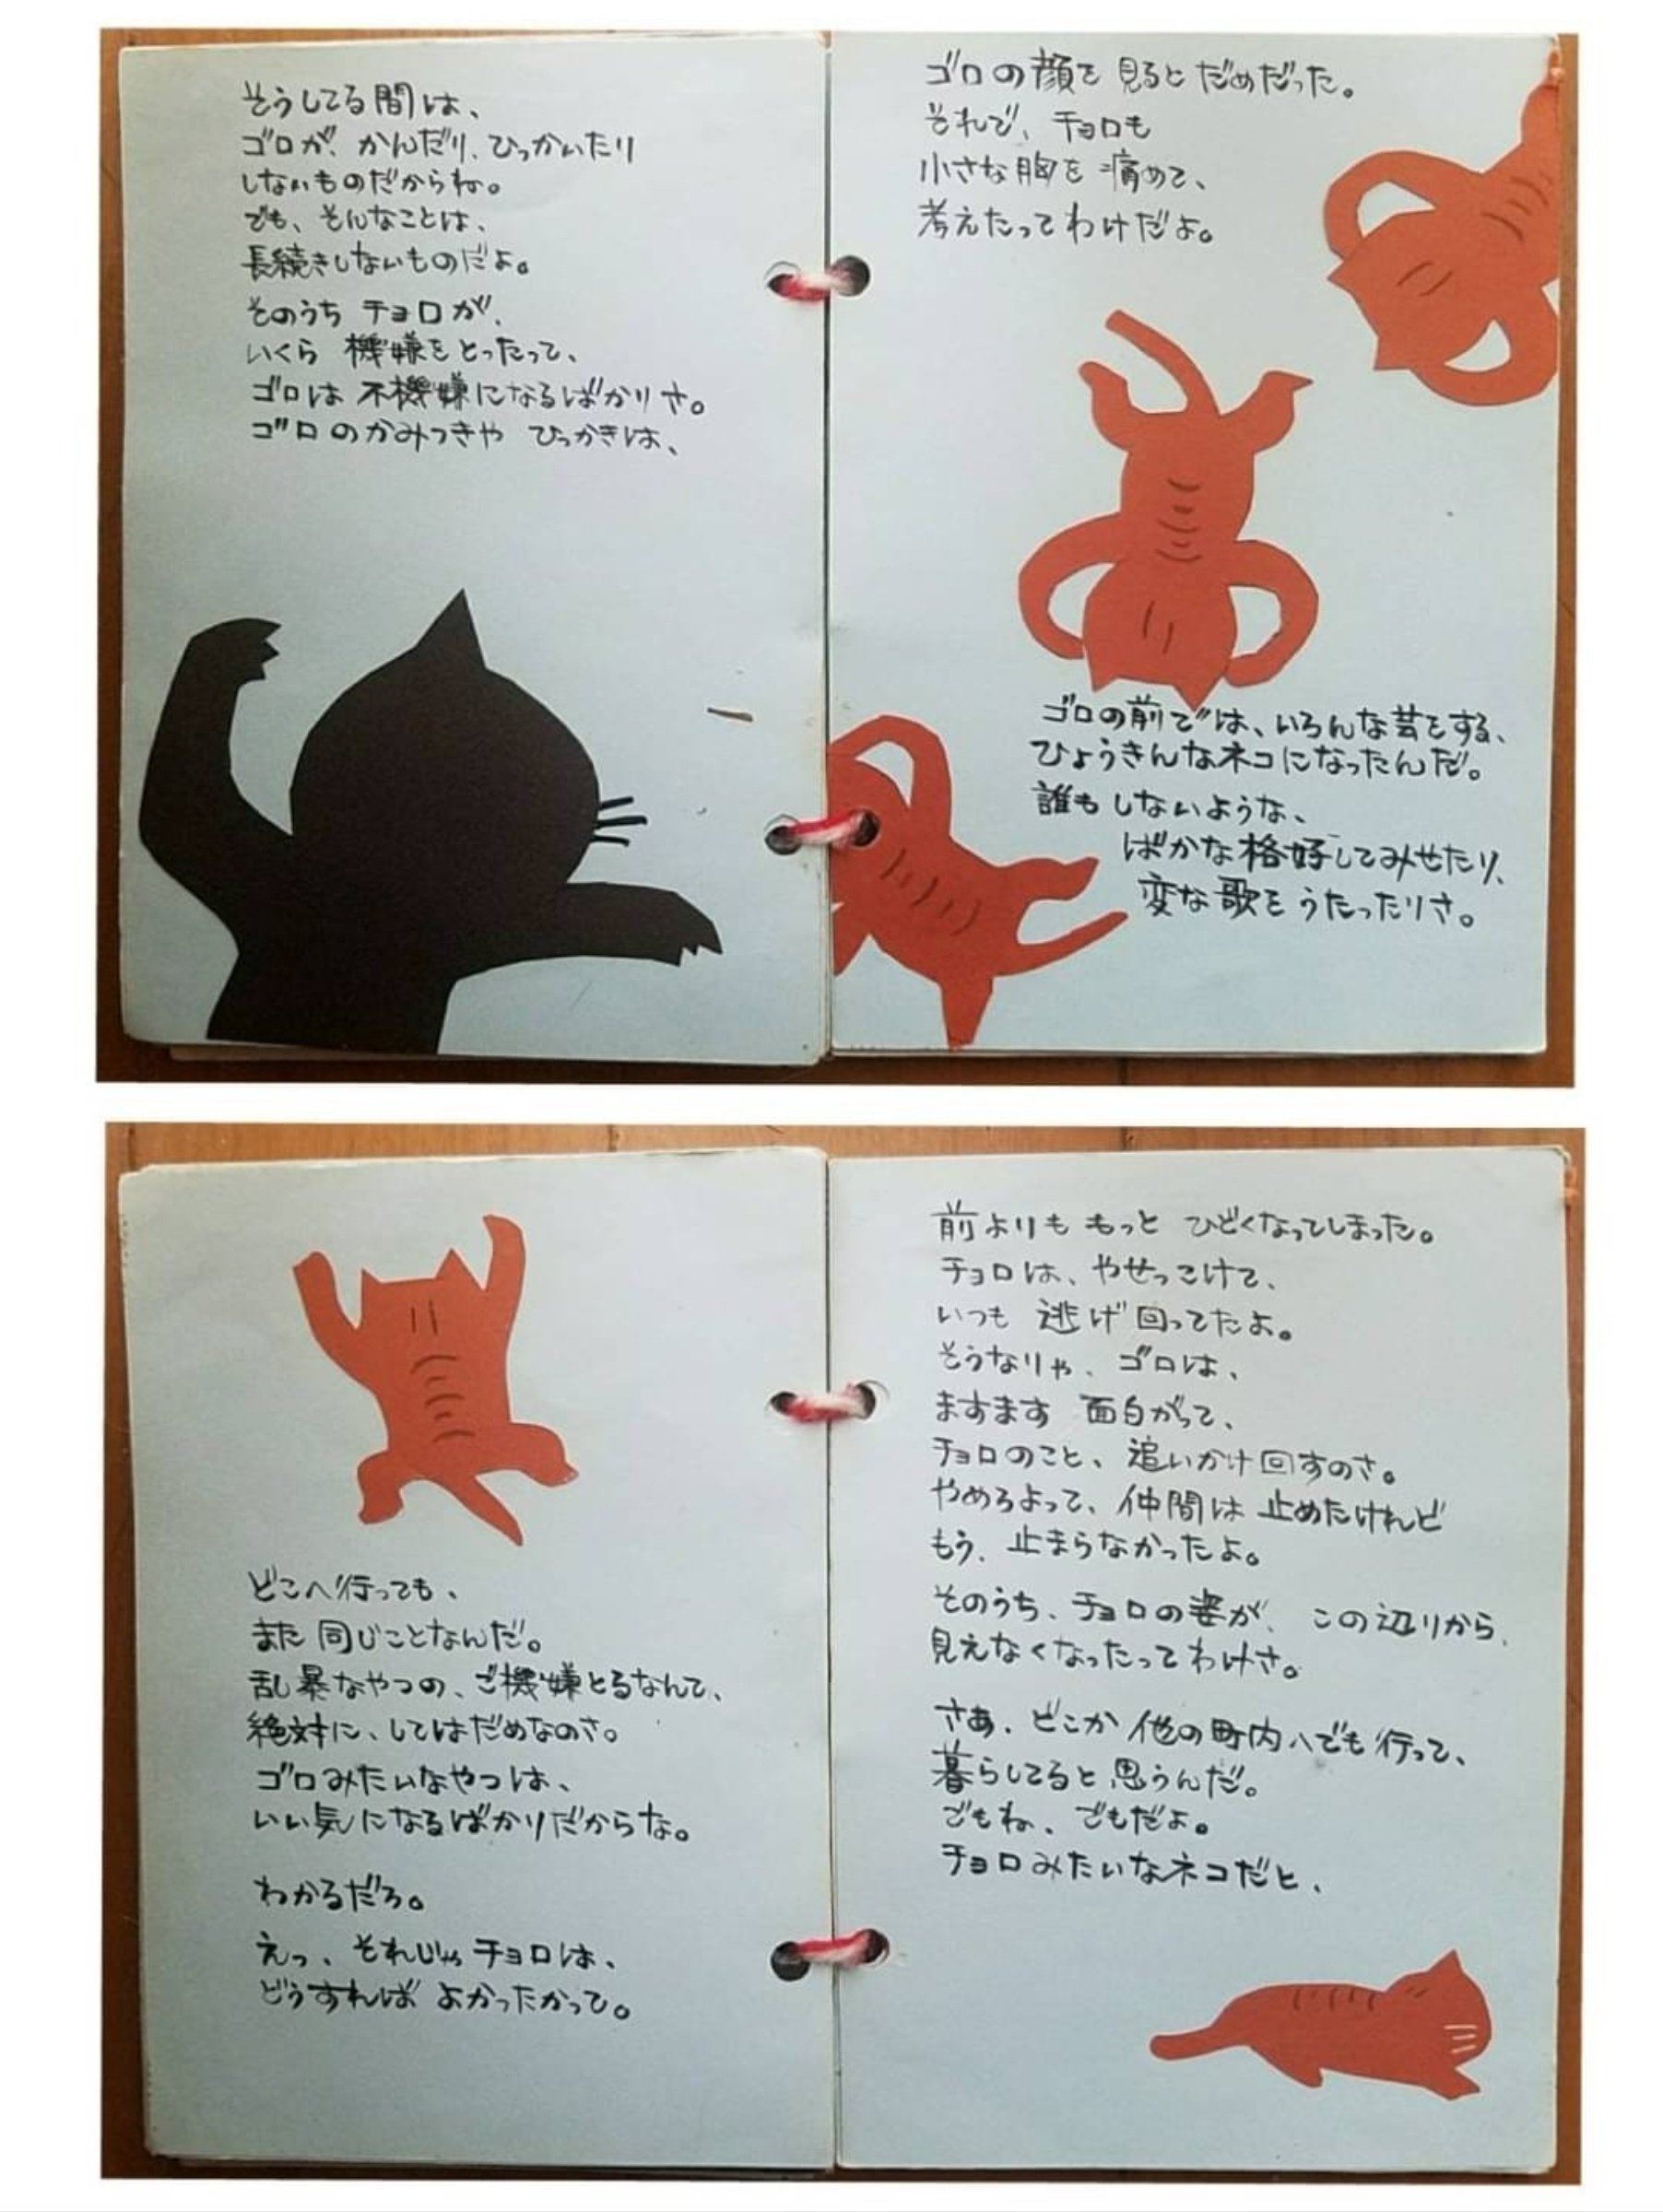 ゴロの顔を見るとだめだった。
それで、チョロも
小さな胸を痛めて、
考えたってわけだよ。
ゴロの前では、いろんな芸をする、
ひょうきんなネコになったんだ。
誰もしないような、
ばかな格好してみせたり、
変な歌をうたったりさ。
そうしてる間は、
ゴロが、かんだり、ひっかいたり
しないものだからね。
でも、そんなことは、
長続きしないものだよ。
そのうち チョロが、
いくら 機嫌をとったって、
ゴロは 不機嫌になるばかりさ。
ゴロのかみつきや ひっかきは、
前よりも もっと ひどくなってしまった。
チョロは、やせっこけて、
いつも 逃げ回ってたよ。
そうなりゃ、ゴロは、
ますます 面白がって、
チョロのこと、追いかけ回すのさ。
やめろよって、仲間は 止めたけれど
もう、止まらなかったよ。
そのうち、チョロの姿が、この辺りから、
見えなくなったってわけさ。
さあ、どこか 他の町内へでも行って、
暮らしてると思うんだ。
でもね、でもだよ。
チョロみたいなネコだと、
どこへ行っても、
また 同じことなんだ。
乱暴なやつの、ご機嫌とるなんて、
絶対に、してはだめなのさ。
ゴロみたいなやつは、
いい気になるばかりだからな。
わかるだろ。
えっ、それじゃチョロは、
どうすれば よかったかって。